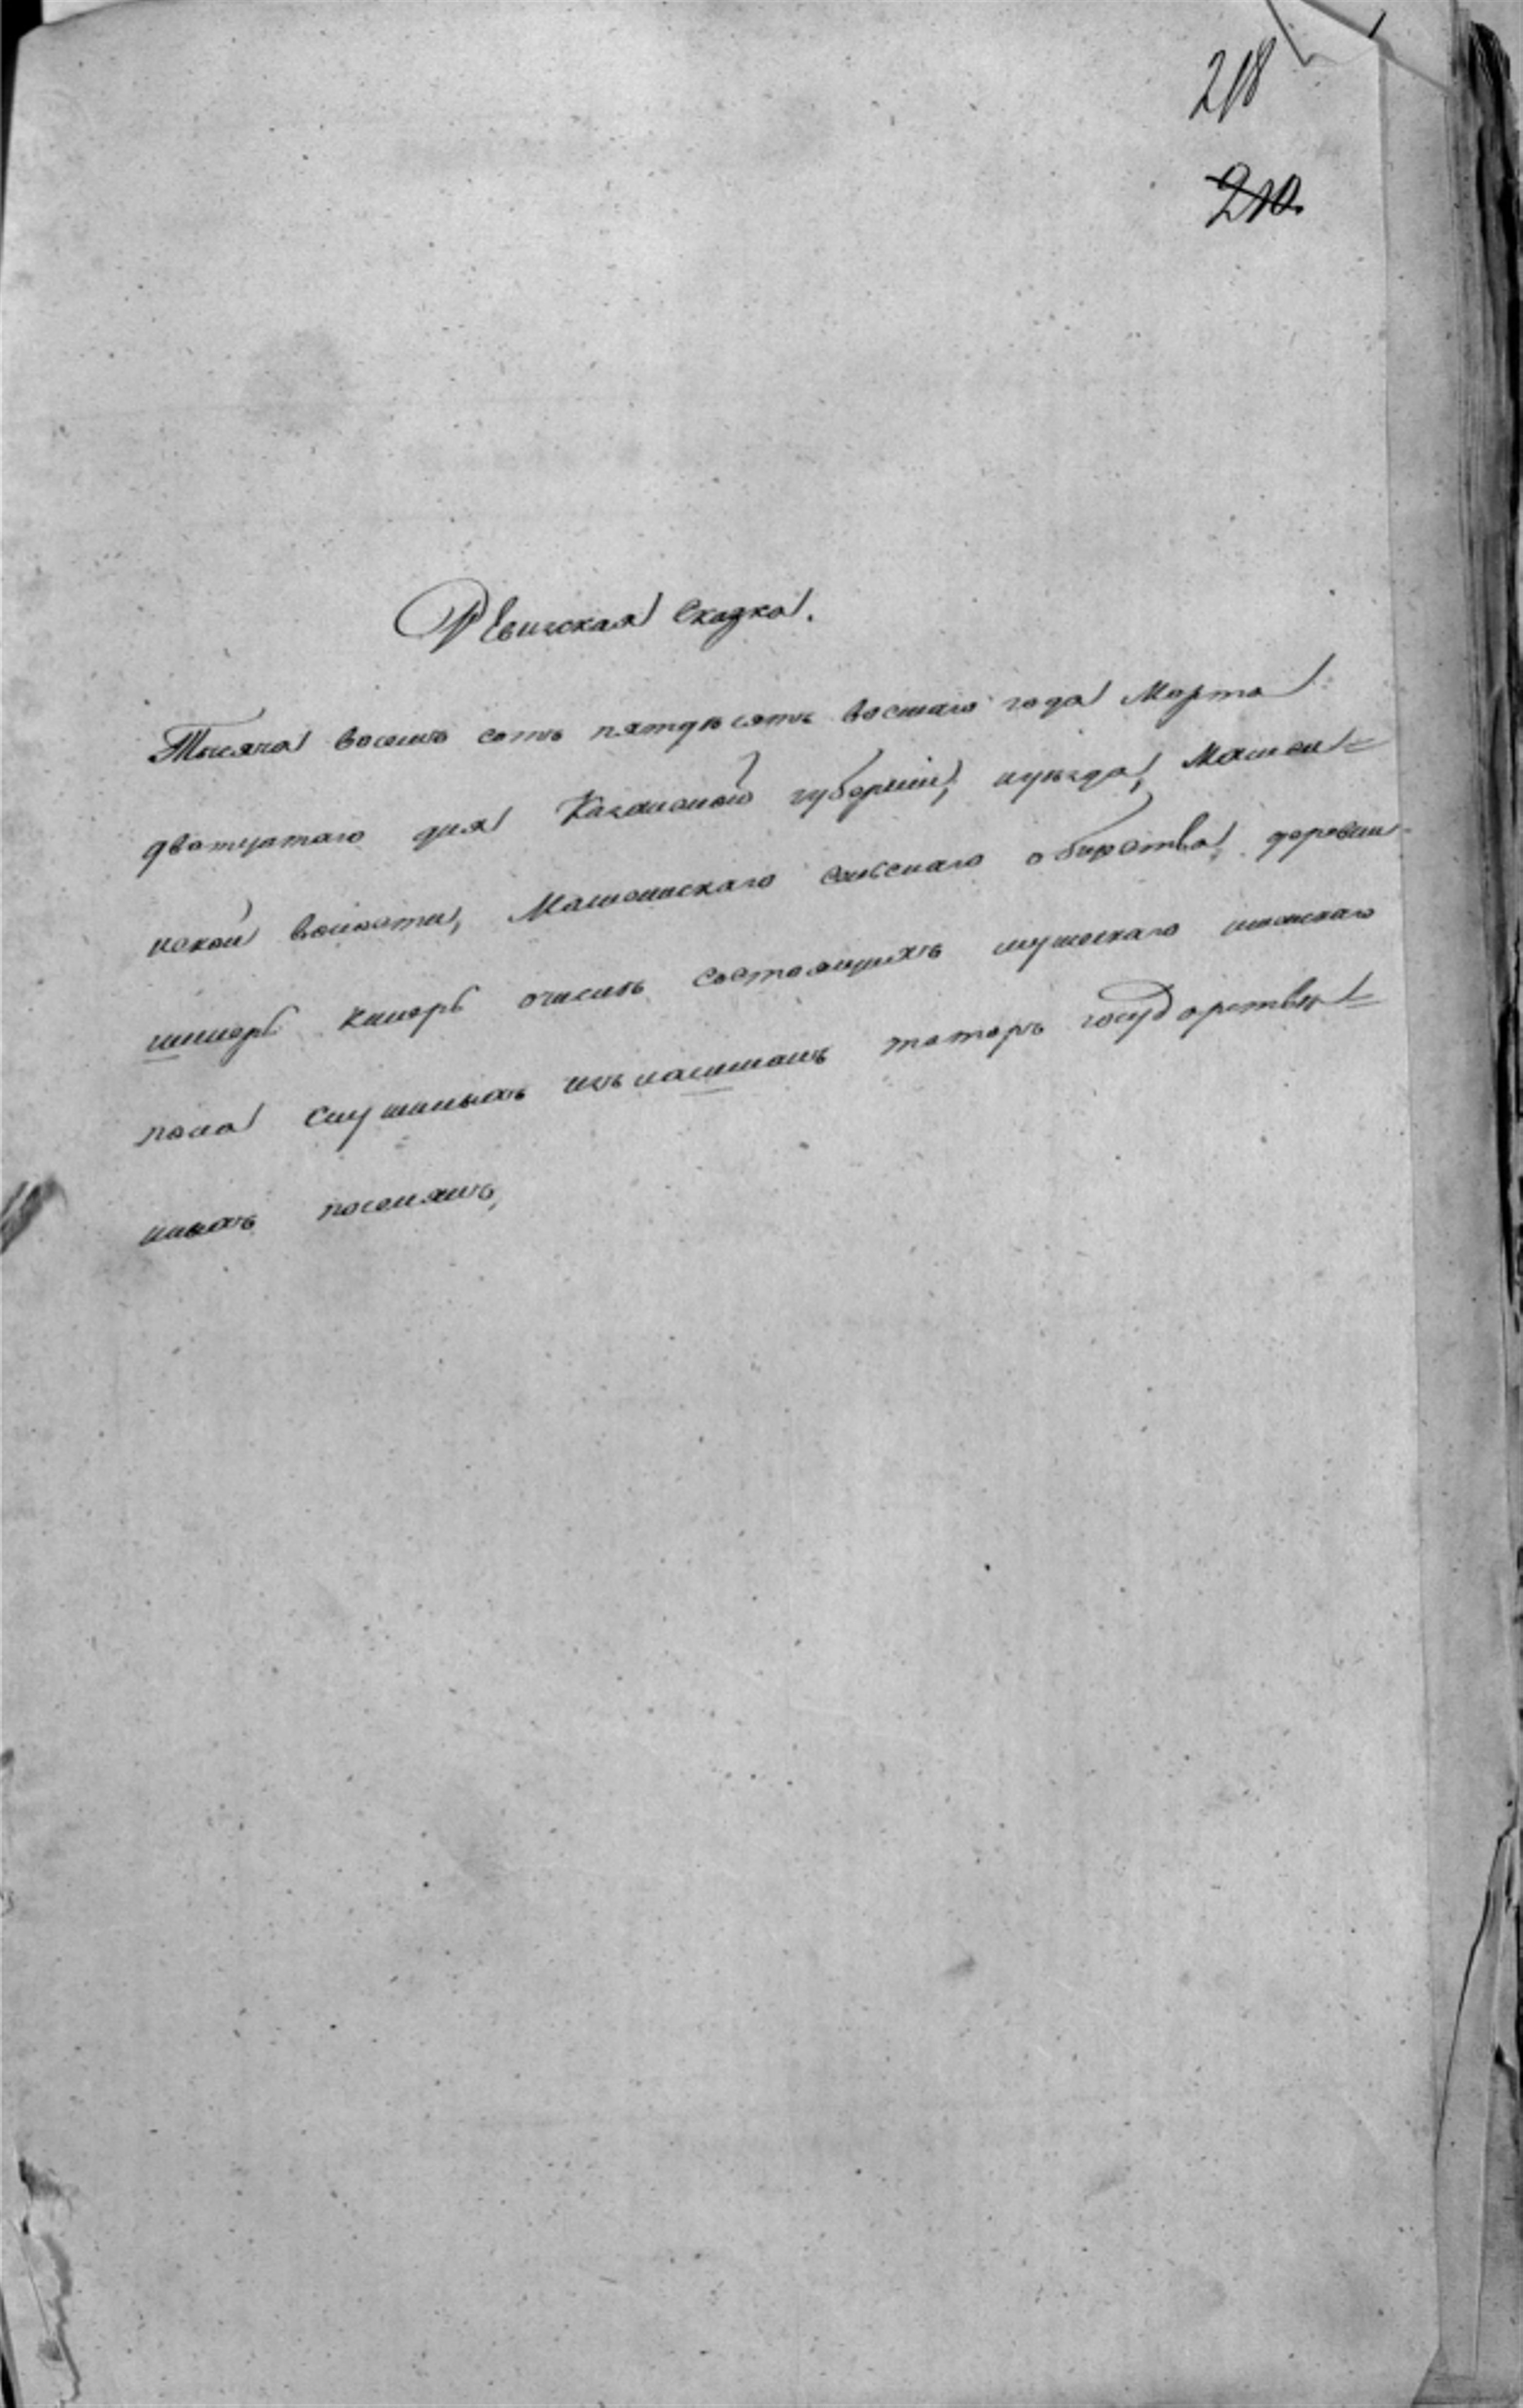 218
210.
Ревизская Сказка.
Тысяча восемь сотъ пятдѣсятъ восмаго года Марта
дватцатаго дня Казанской губерніи, иуѣзда, Машли=
ской волости, Машлинскаго сельскаго общества деревни
кинерь очисле состоящихъ мужескаго женскаго
пола служилыхъ изънасшихъ татаръ государствен=
ныхъ поселянъ,